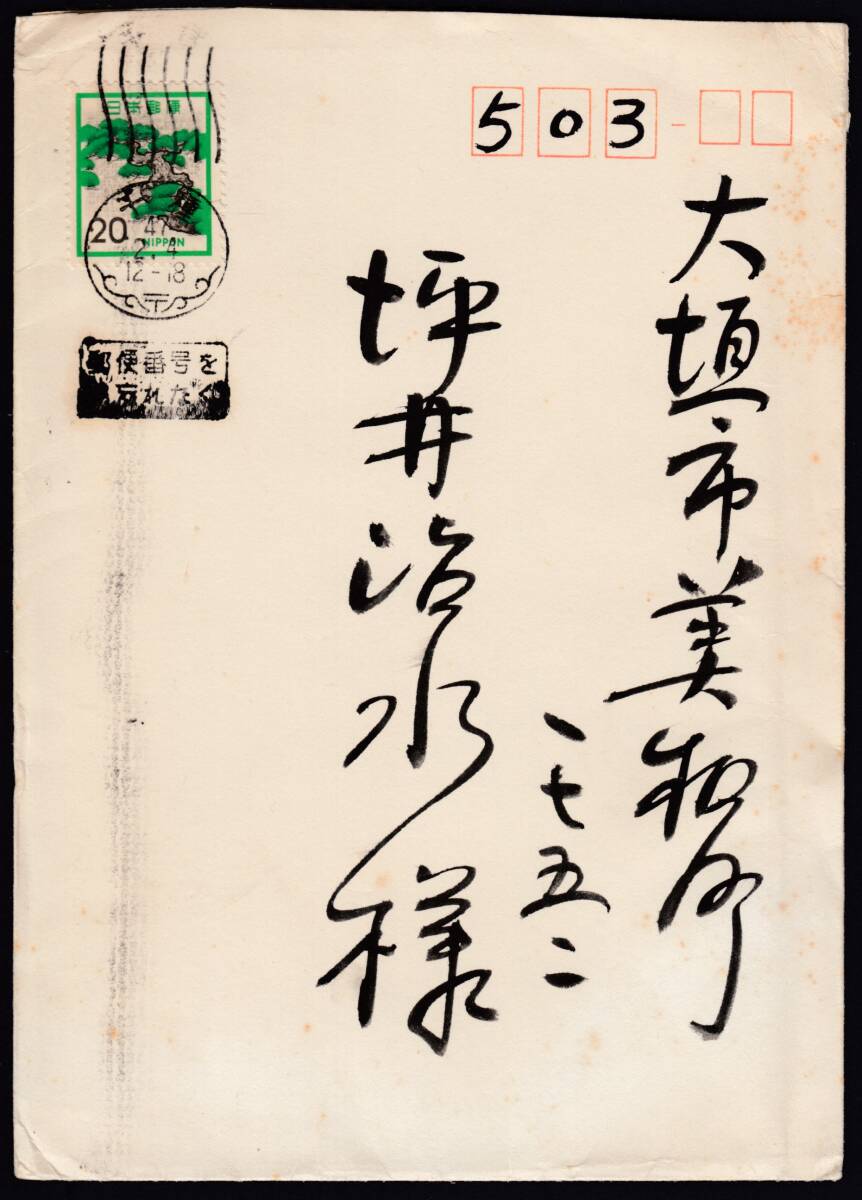 日本郵便
20
NIPPON
千種
47
2.4
12-18
〒
郵便番号を
忘れなく
503
大垣市美和町
一七五二
坪井治水様